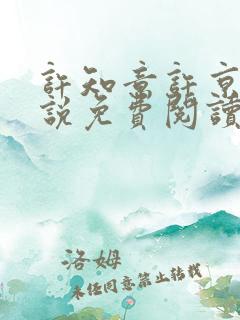 許知意許京
說免費閱讀
洛姆
未經同意禁止轉載